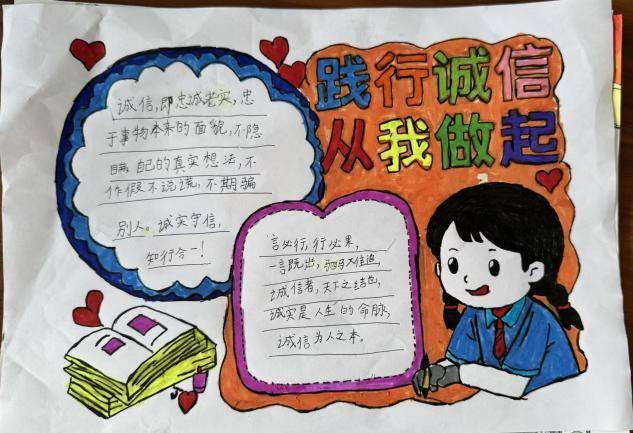 践行诚信
从我做起
诚信,即忠诚老实,忠
于事物本来的面貌,不隐
瞒自己的真实想法,不
作假不说谎,不期骗
别人。诚实守信,
知行合一!
言必行,行必果,
一言既出,驷马难追,
诚信者,天下之结也,
诚实是人生的命脉,
诚信为人之本。